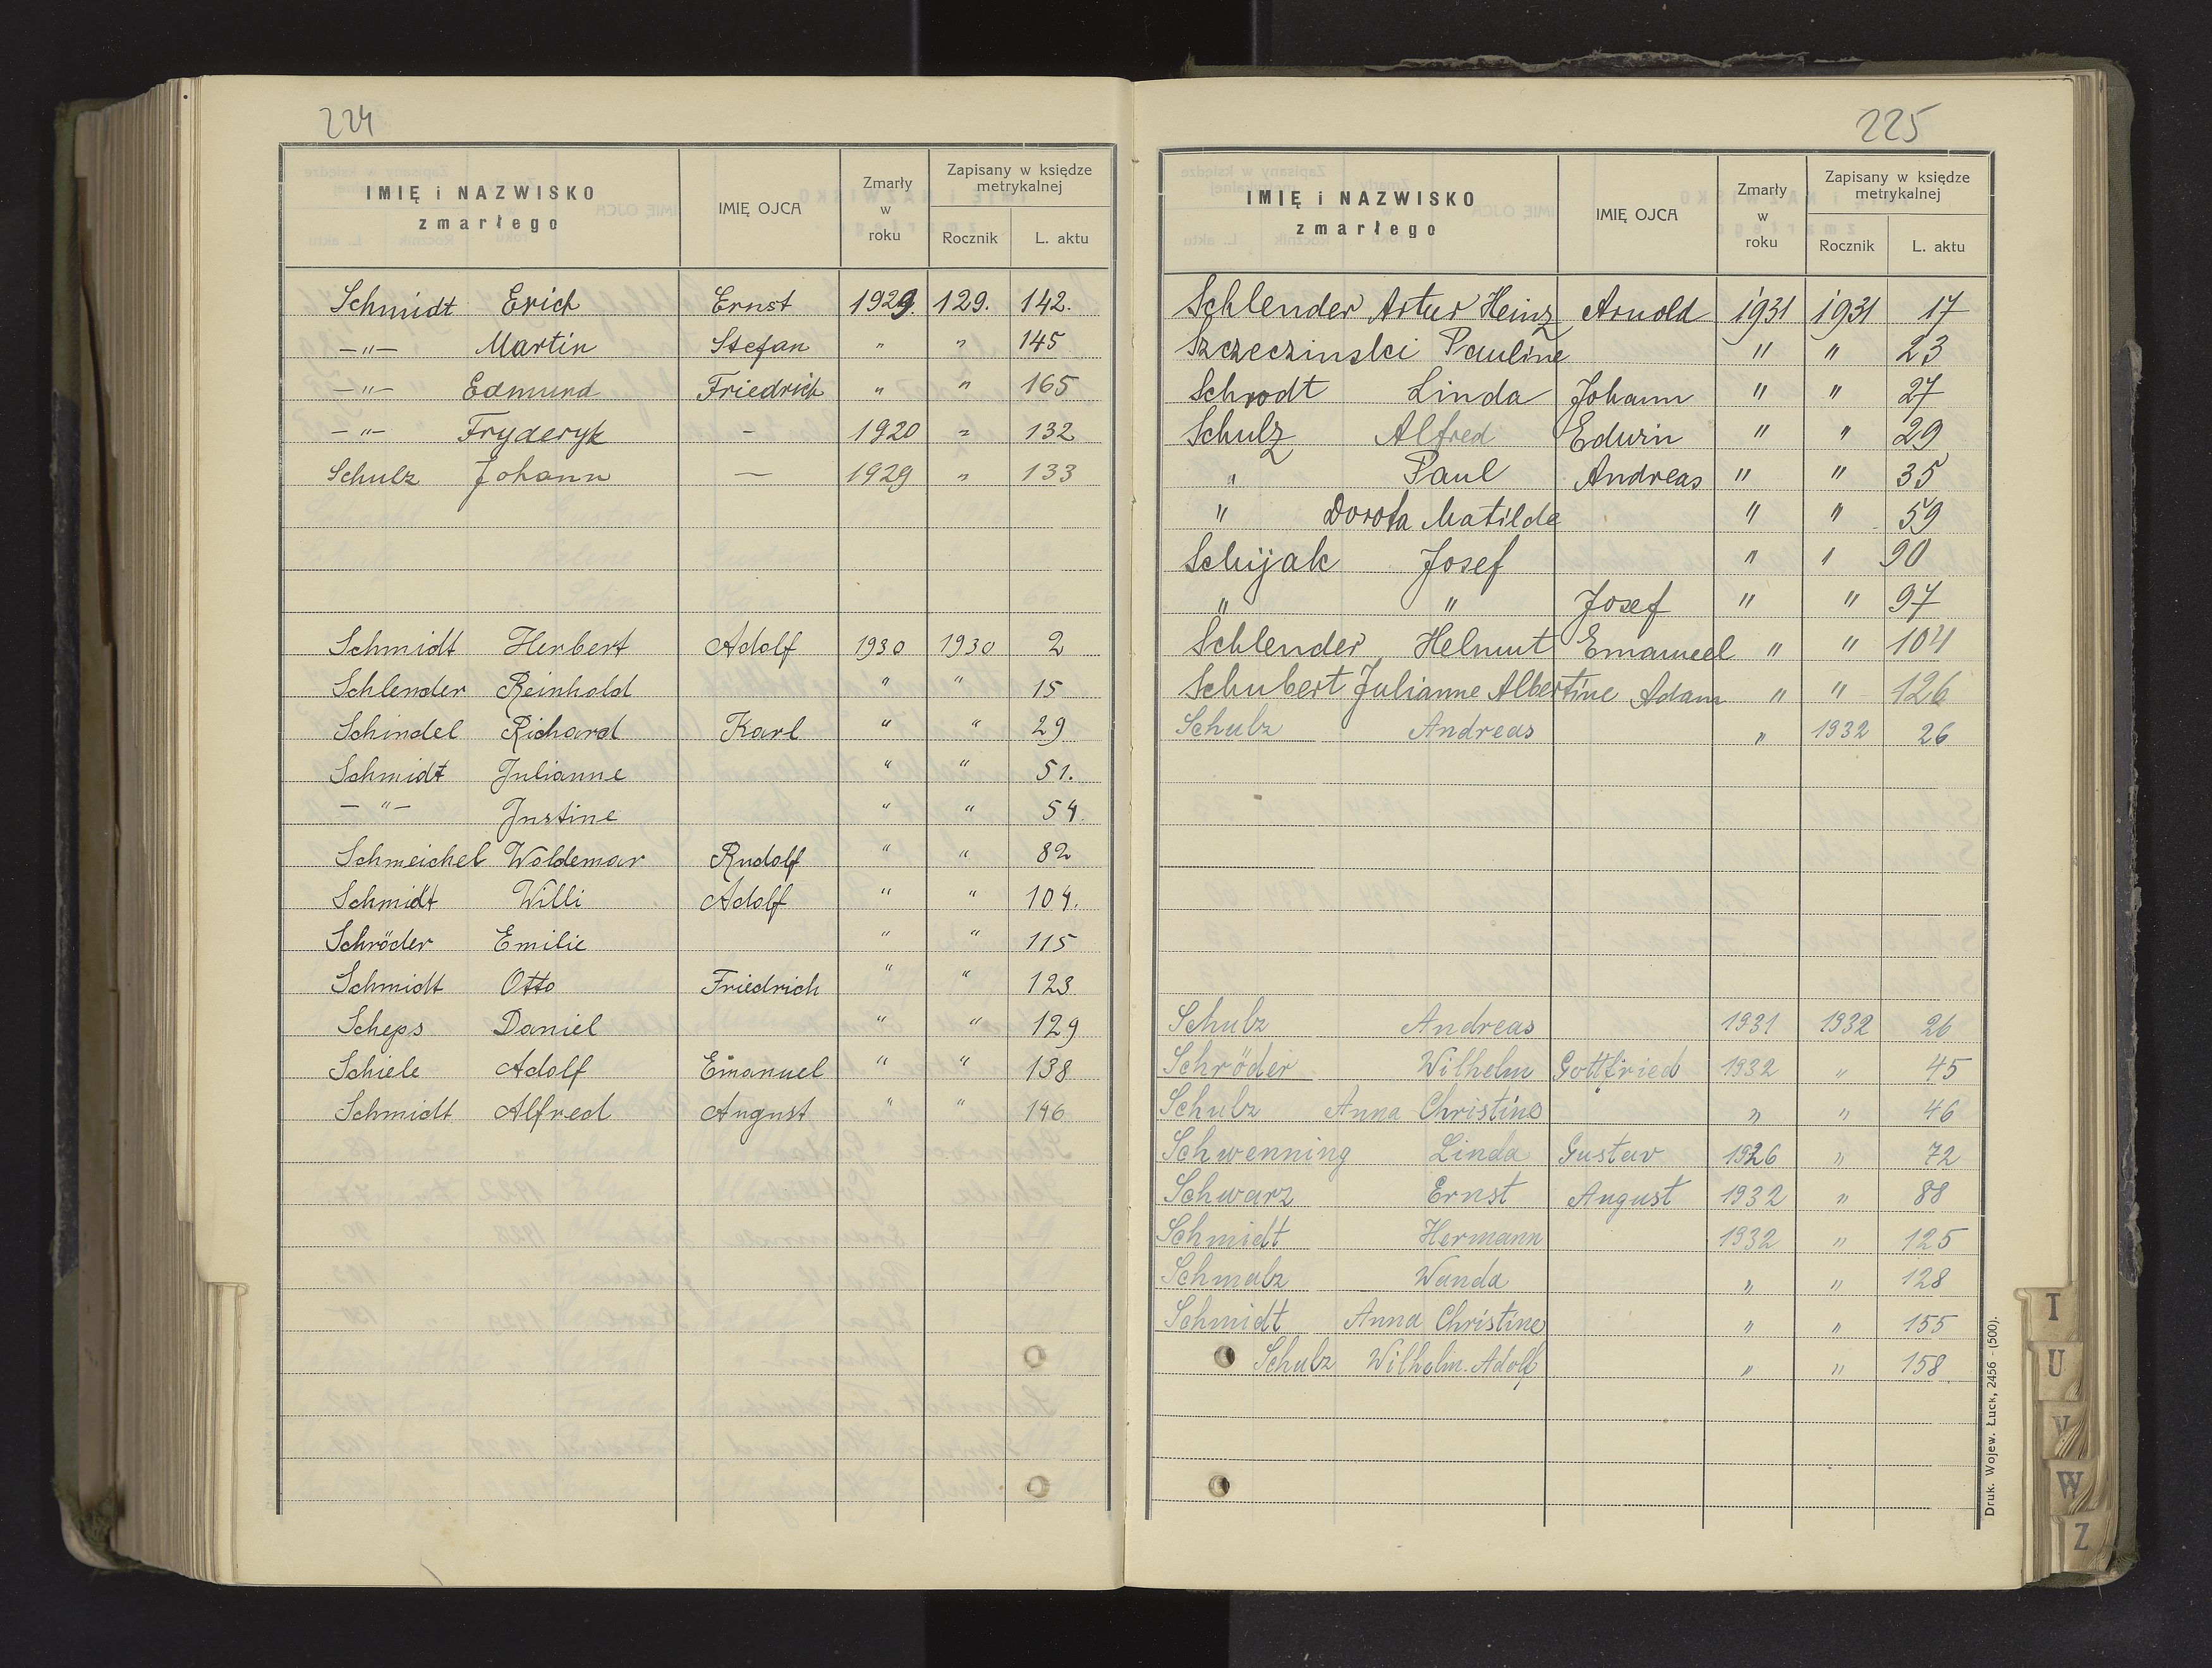 224
IMIĘ i NAZWISKO zmarłego IMIĘ OJCA Zmarły w roku Zapisany w księdze metrykalnej Rocznik L. aktu
Schmidt Erich Ernst 1929. 129. 142.
—"— Martin Stefan " " 145
—"— Edmund Friedrich " " 165
—"— Fryderyk - 1920 " 132
Schulz Johann — 1929 " 133
Schmidt Herbert Adolf 1930 1930 2
Schlender Reinhold " " 15
Schindel Richard Karl " " 29
Schmidt Julianne " " 51.
—"— Justine " " 54.
Schmeichel Woldemar Rudolf " " 82
Schmidt Willi Adolf " " 104.
Schröder Emilie " " 115
Schmidt Otto Friedrich " " 123
Scheps Daniel " " 129
Schiele Adolf Emanuel " " 138
Schmidt Alfred August " " 146
225
IMIĘ i NAZWISKO zmarłego IMIĘ OJCA Zmarły w roku Zapisany w księdze metrykalnej Rocznik L. aktu
Schlender Artur Heinz Arnold 1931 1931 17
Szczeczinski Pauline " " 23
Schrodt Linda Johann " " 27
Schulz Alfred Edwin " " 29
" Paul Andreas " " 35
" Dorota Matilde " " 59
Schijak Josef " " 90
" " Josef " " 97
Schlender Helmut Emanuel " " 104
Schubert Julianne Albertine Adam " " 126
Schulz Andreas " 1932 26
Schulz Andreas 1931 1932 26
Schröder Wilhelm Gottfried 1932 " 45
Schulz Anna Christine " " 46
Schwenning Linda Gustav 1926 " 72
Schwarz Ernst August 1932 " 88
Schmidt Hermann 1932 " 125
Schmalz Wanda " " 128
Schmidt Anna Christine " " 155
Schulz Wilhelm Adolf " " 158
Druk. Wojew. Łuck, 2456 - (500).
T
U
V
W
Z